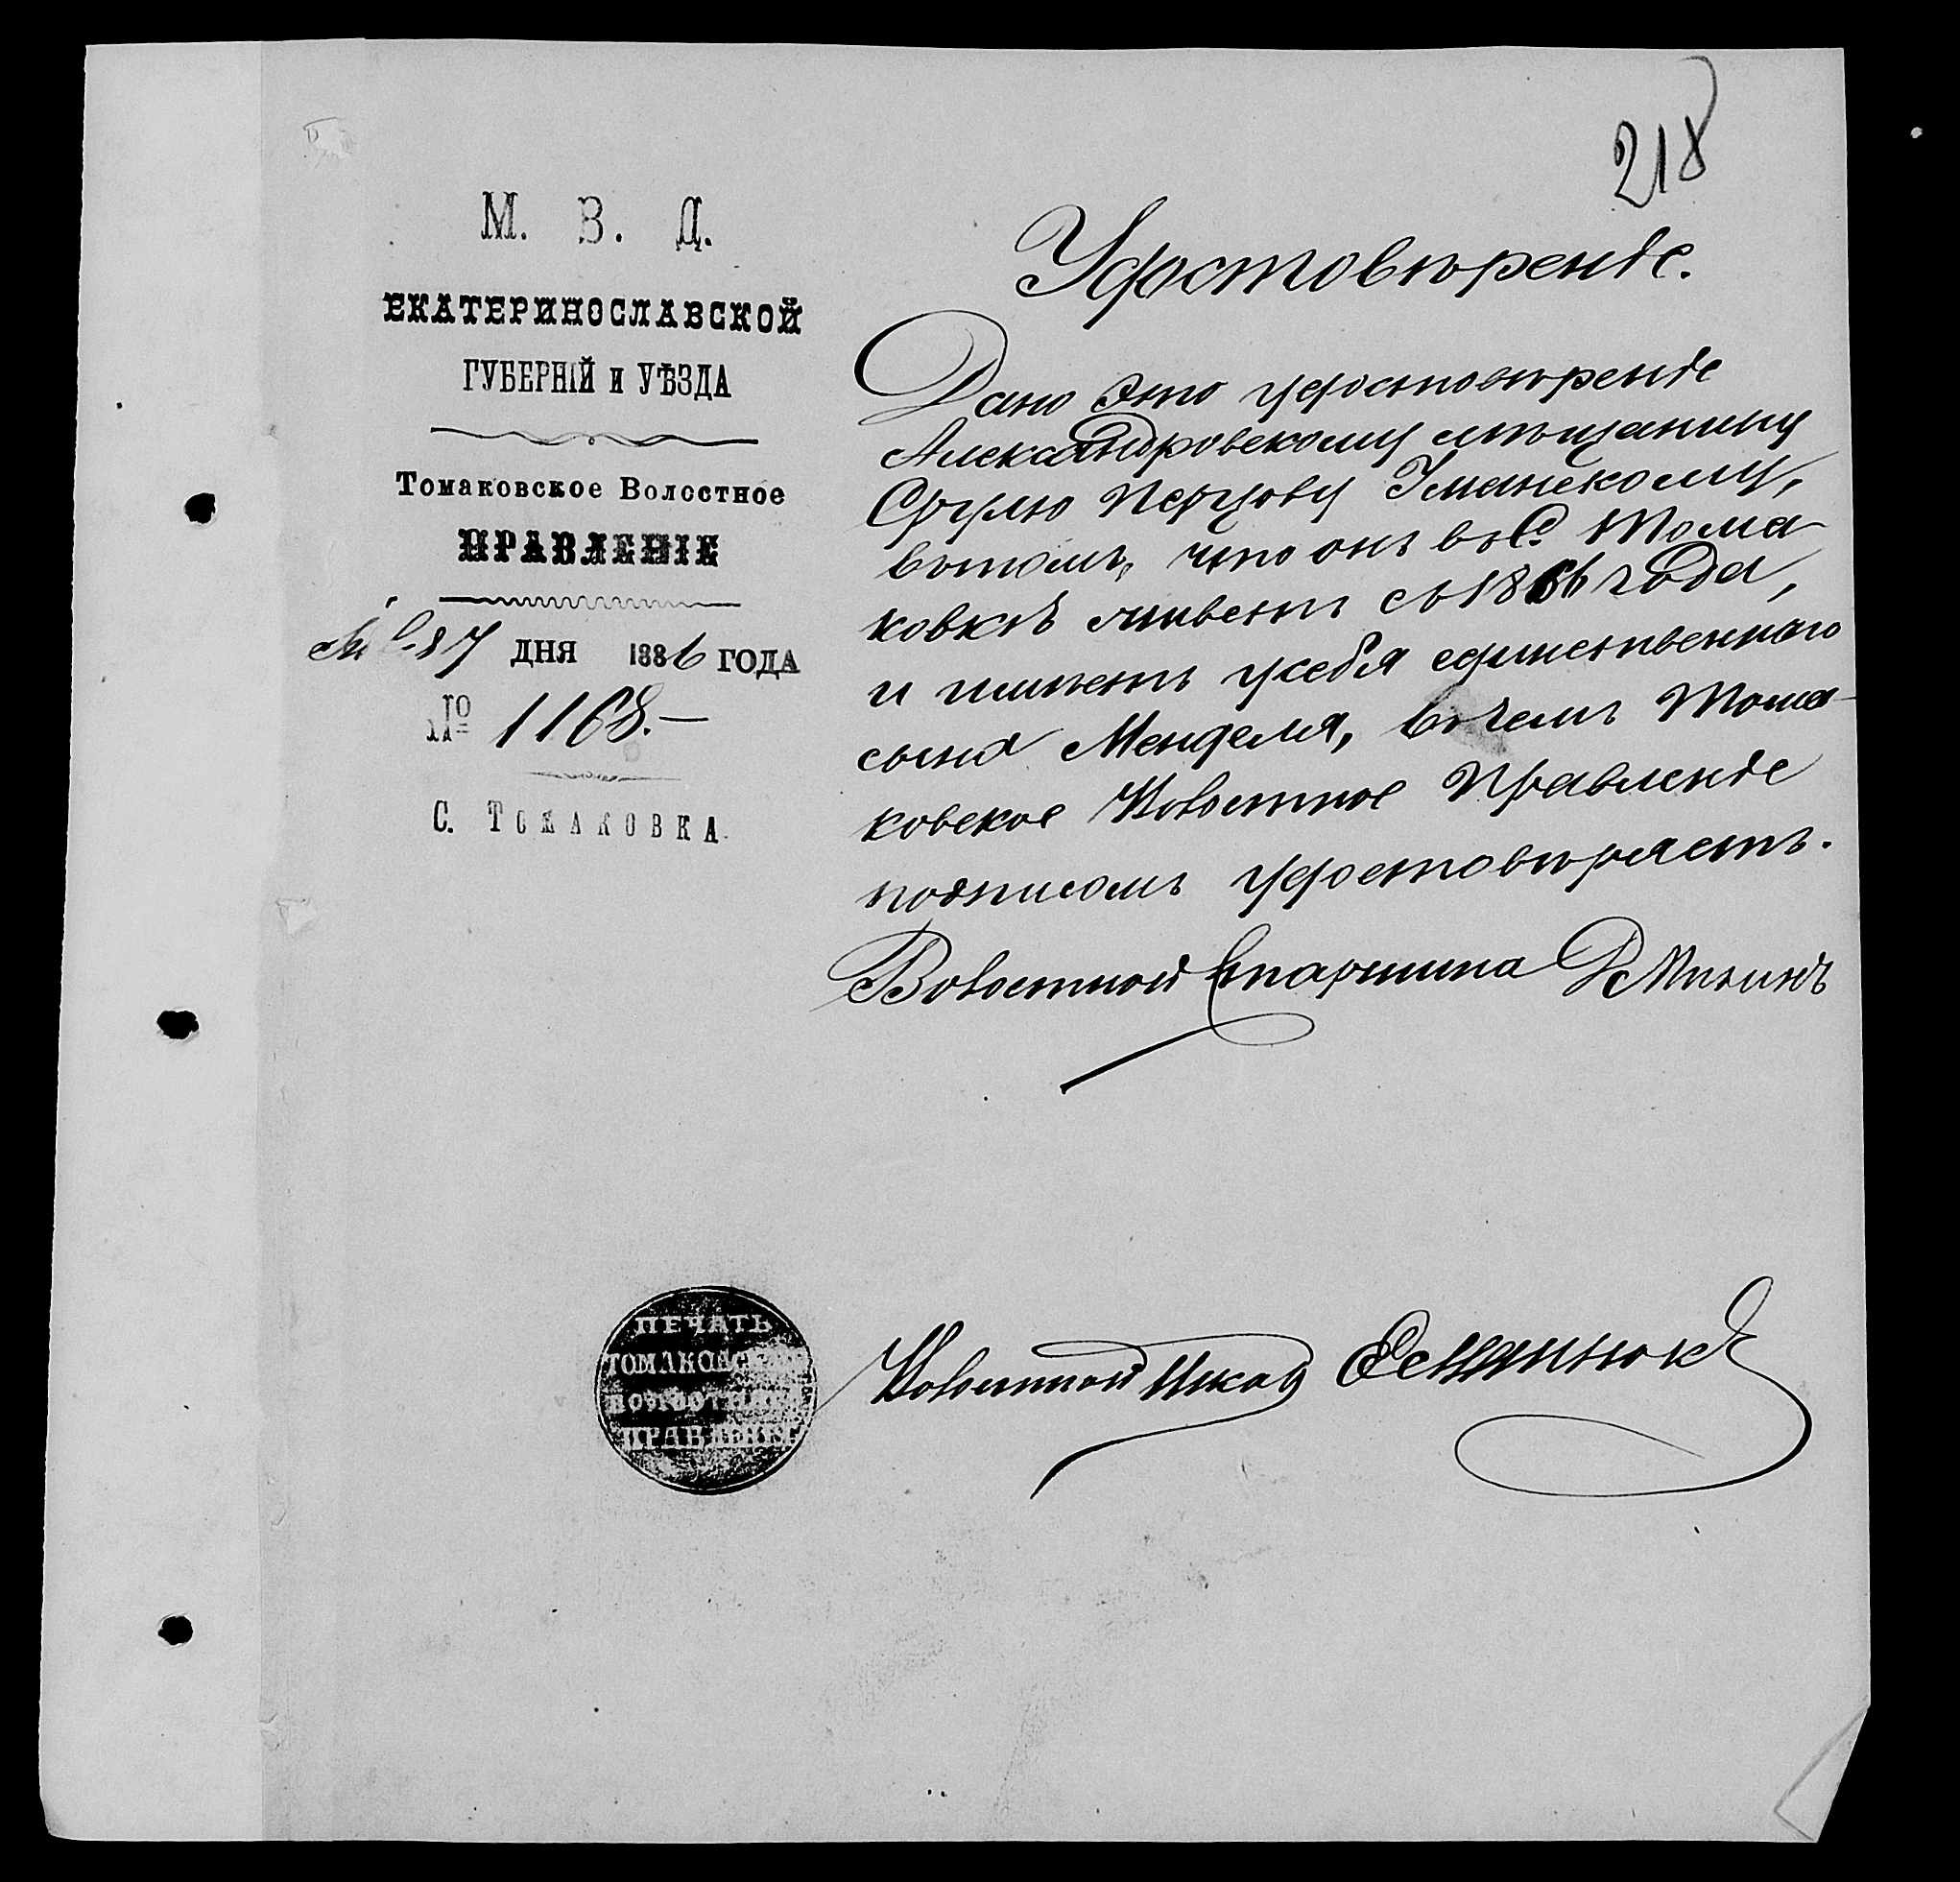 218
М. В. Д.
ЕКАТЕРИНОСЛАВСКОЙ
ГУБЕРНІЙ и УѢЗДА
Томаковское Волостное
ПРАВЛЕНІЕ
27 ДНЯ 1886 ГОДА
№ 1168.—
С. ТОМАКОВКА.
Удостовѣреніе.
Дано это удостовѣреніе
Александровскому мѣщанину
Срулю Уманскому,
вътомъ, что онъ въ С. Тома
ковкѣ живетъ съ 1866 года,
и имѣетъ усебя единственнаго
сына Менделя, въ чемъ Тома-
ковское Волостное Правленіе
подписомъ удостовѣряетъ.
Волостной Старшина
ПЕЧАТЬ
ТОМАКОВСКАГО
ВОЛОСТНАГО
ПРАВЛЕНІЯ
Волостной Писарь